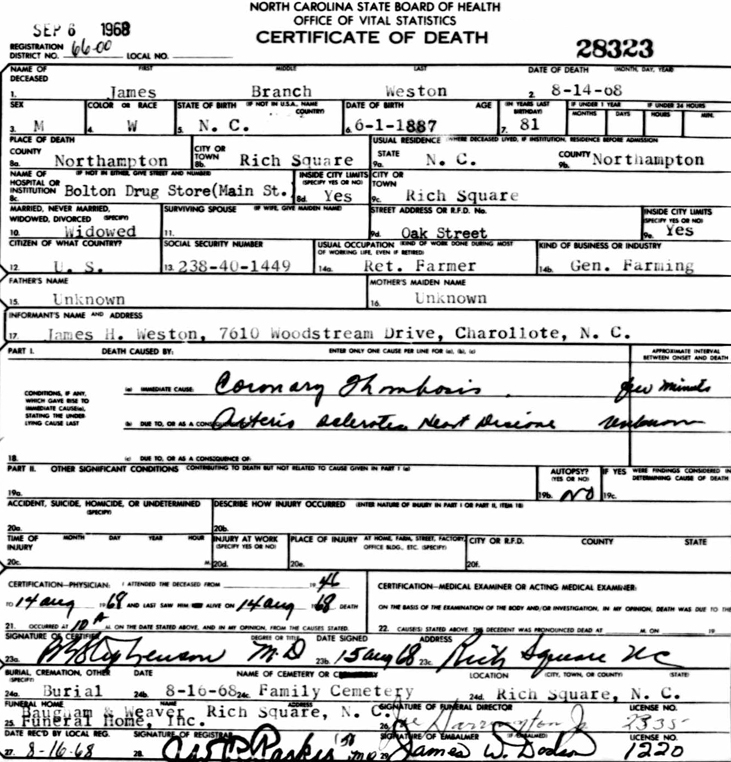 NORTH CAROLINA STATE BOARD OF HEALTH
OFFICE OF VITAL STATISTICS
SEP 6 1968
CERTIFICATE OF DEATH
28323
REGISTRATION DISTRICT NO. 66-00 LOCAL NO.
NAME OF DECEASED FIRST MIDDLE LAST DATE OF DEATH (MONTH, DAY, YEAR)
1. James Branch Weston 2. 8-14-68
SEX COLOR OR RACE STATE OF BIRTH (IF NOT IN U.S.A., NAME COUNTRY) DATE OF BIRTH AGE (IN YEARS LAST BIRTHDAY) IF UNDER 1 YEAR IF UNDER 24 HOURS
MONTHS DAYS HOURS MIN.
3. M 4. W 5. N. C. 6. 6-1-1887 7. 81
PLACE OF DEATH USUAL RESIDENCE (WHERE DECEASED LIVED, IF INSTITUTION, RESIDENCE BEFORE ADMISSION
COUNTY CITY OR TOWN STATE COUNTY
8a. Northampton 8b. Rich Square 9a. N. C. 9b. Northampton
NAME OF HOSPITAL OR INSTITUTION (IF NOT IN EITHER, GIVE STREET AND NUMBER) INSIDE CITY LIMITS (SPECIFY YES OR NO) CITY OR TOWN
8c. Bolton Drug Store(Main St. 8d. Yes 9c. Rich Square
MARRIED, NEVER MARRIED, WIDOWED, DIVORCED (SPECIFY) SURVIVING SPOUSE (IF WIFE, GIVE MAIDEN NAME) STREET ADDRESS OR R.F.D. No. INSIDE CITY LIMITS (SPECIFY YES OR NO)
10. Widowed 11. 9d. Oak Street 9e. Yes
CITIZEN OF WHAT COUNTRY? SOCIAL SECURITY NUMBER USUAL OCCUPATION (KIND OF WORK DONE DURING MOST OF WORKING LIFE, EVEN IF RETIRED) KIND OF BUSINESS OR INDUSTRY
12. U. S. 13. 238-40-1449 14a. Ret. Farmer 14b. Gen. Farming
FATHER'S NAME MOTHER'S MAIDEN NAME
15. Unknown 16. Unknown
INFORMANT'S NAME AND ADDRESS
17. James H. Weston, 7610 Woodstream Drive, Charollote, N. C.
PART I. DEATH CAUSED BY: ENTER ONLY ONE CAUSE PER LINE FOR (a), (b), (c) APPROXIMATE INTERVAL BETWEEN ONSET AND DEATH
CONDITIONS, IF ANY, WHICH GAVE RISE TO IMMEDIATE CAUSE(a), STATING THE UNDERLYING CAUSE LAST
(a) IMMEDIATE CAUSE: Coronary Thombosis few minuts
(b) DUE TO, OR AS A CONSEQUENCE OF: Arterio sclerotic Heart Disease unknown
18. (c) DUE TO, OR AS A CONSEQUENCE OF:
PART II. OTHER SIGNIFICANT CONDITIONS CONTRIBUTING TO DEATH BUT NOT RELATED TO CAUSE GIVEN IN PART 1 (a) AUTOPSY? (YES OR NO) IF YES WERE FINDINGS CONSIDERED IN DETERMINING CAUSE OF DEATH
19a. 19b. NO 19c.
ACCIDENT, SUICIDE, HOMICIDE, OR UNDETERMINED (SPECIFY) DESCRIBE HOW INJURY OCCURRED (ENTER NATURE OF INJURY IN PART I OR PART II, ITEM 18)
20a. 20b.
TIME OF INJURY MONTH DAY YEAR HOUR INJURY AT WORK (SPECIFY YES OR NO) PLACE OF INJURY AT HOME, FARM, STREET, FACTORY, OFFICE BLDG., ETC. (SPECIFY) CITY OR R.F.D. COUNTY STATE
20c. M. 20d. 20e. 20f.
CERTIFICATION—PHYSICIAN: I ATTENDED THE DECEASED FROM 1946 CERTIFICATION—MEDICAL EXAMINER OR ACTING MEDICAL EXAMINER:
TO 14 aug 1968 AND LAST SAW HIM ALIVE ON 14 aug 1968 DEATH ON THE BASIS OF THE EXAMINATION OF THE BODY AND/OR INVESTIGATION, IN MY OPINION, DEATH WAS DUE TO THE
21. OCCURRED AT 10 A M. ON THE DATE STATED ABOVE, AND IN MY OPINION, FROM THE CAUSES STATED. 22. CAUSE(S) STATED ABOVE. THE DECEDENT WAS PRONOUNCED DEAD AT M. ON 19
SIGNATURE OF CERTIFIER DEGREE OR TITLE DATE SIGNED ADDRESS
23a. Stephenson M.D 23b. 15 aug 68 23c. Rich Square NC
BURIAL, CREMATION, OTHER (SPECIFY) DATE NAME OF CEMETERY OR LOCATION (CITY, TOWN, OR COUNTY) (STATE)
24a. Burial 24b. 8-16-68 24c. Family Cemetery 24d. Rich Square, N. C.
FUNERAL HOME NAME ADDRESS SIGNATURE OF FUNERAL DIRECTOR LICENSE NO.
25. Baugham & Weaver Rich Square, N. C. 26. Joe Harrington Jr 2335
Funeral Home, Inc.
DATE REC'D BY LOCAL REG. SIGNATURE OF REGISTRAR SIGNATURE OF EMBALMER (IF EMBALMED) LICENSE NO.
27. 8-16-68 28. Parker 29. James W. Dodson 1220